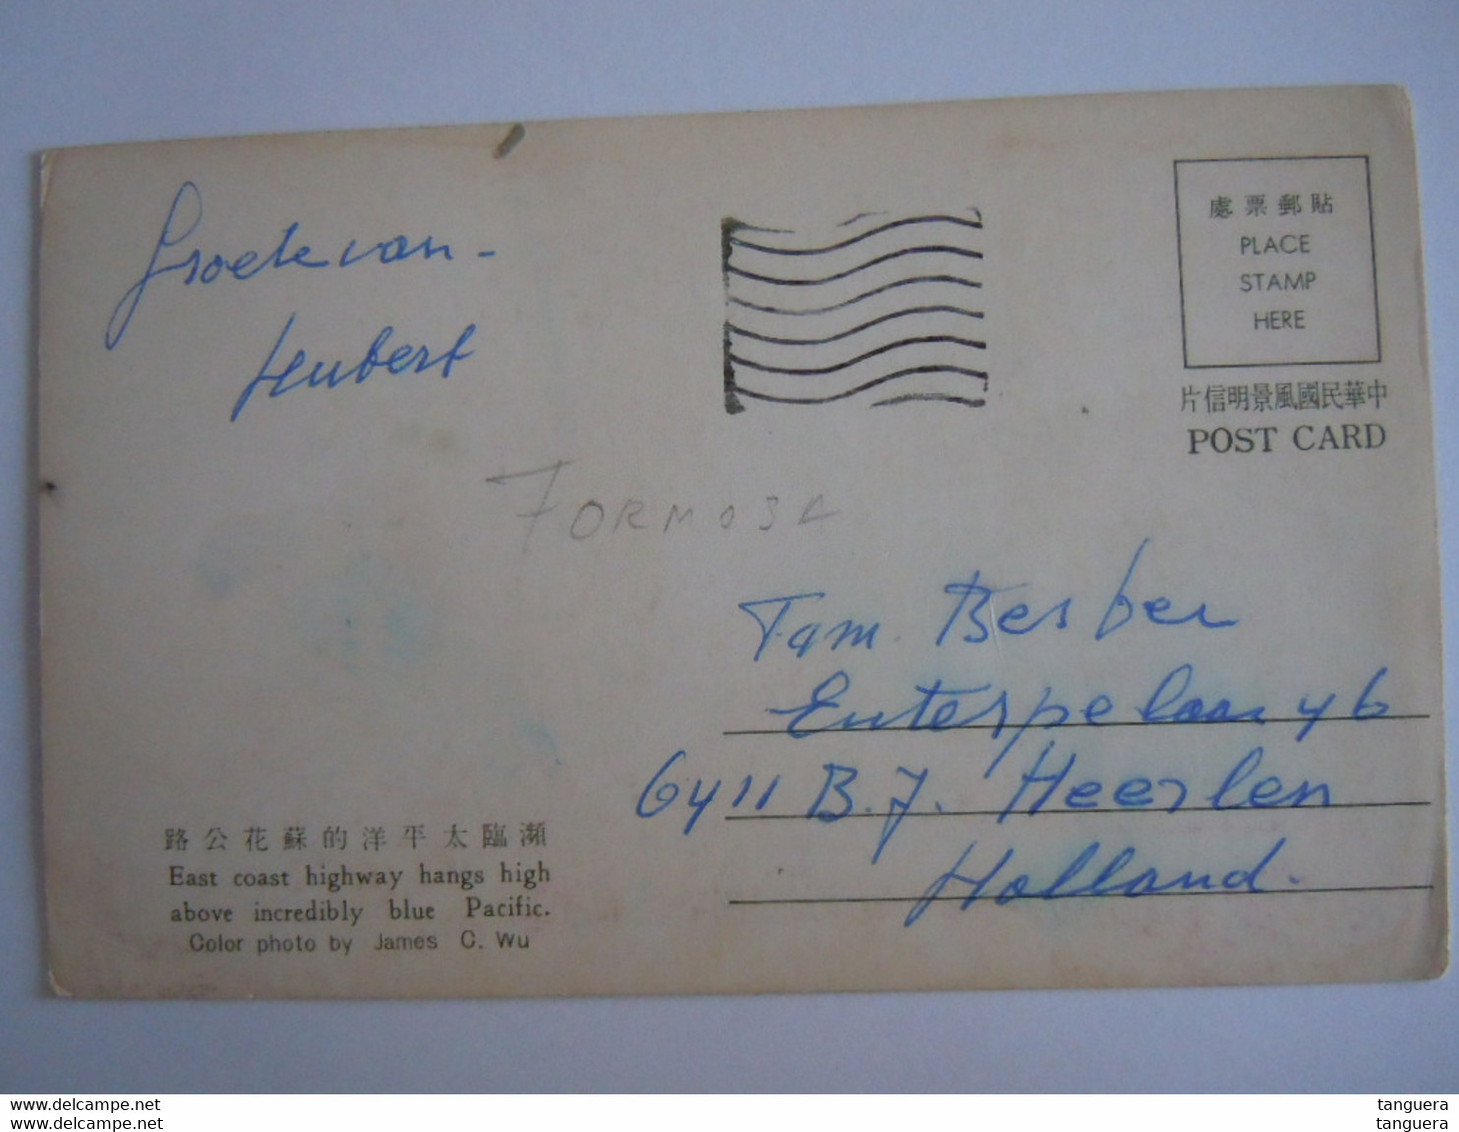 Groete van -
Hubert
貼郵票處
PLACE
STAMP
HERE
中華民國風景明信片
POST CARD
FORMOSA
Fam. Berber
Euterpelaan 46
6411 B.J. Heerlen
Holland.
瀕臨太平洋的蘇花公路
East coast highway hangs high
above incredibly blue Pacific.
Color photo by James C. Wu
tanguera.
tanguera.
tanguera
tanguera.
tanguera
tanguera.